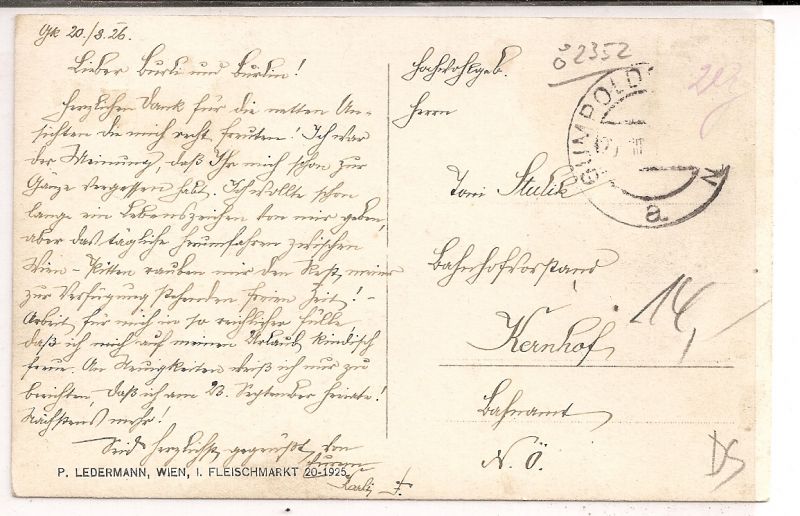 Gk 20./8.26.
Lieber Burli und Burlin!
Herzlichen Dank für die netten An-
sichten die mich recht freuten! Ich war
der Meinung, daß Ihr mich schon zur
Gänze vergessen habt. Ich wollte schon
lange ein Lebenszeichen von mir geben,
aber das tägliche herumfahren zwischen
Wien - rauben mir den Rest meiner
zur Verfügung stehenden freien Zeit! -
Arbeit für mich in so reichlicher Fülle
daß ich mich auf meinen Urlaub kindisch
freue. An Neuigkeiten weiß ich nur zu
berichten, daß ich am 23. September heirate!
Nächstens mehr!
Seid herzlichst gegrüßt von
Eurem
Karli
P. LEDERMANN, WIEN, I. FLEISCHMARKT 20-1925
Hochwohlgeb.
Herrn
Toni Stulik
Bahnhofvorstand
Kernhof
Bahnamt
N. Ö.
ö 2352
GUMPOLD
a
14,
DS